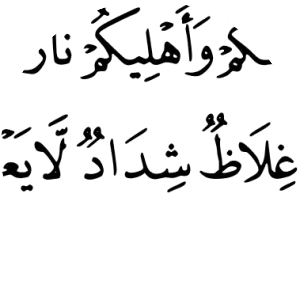 ـكُمْ وَأَهْلِيكُمْ نار
غِلَاظٌ شِدَادٌ لَّا يَعْـ